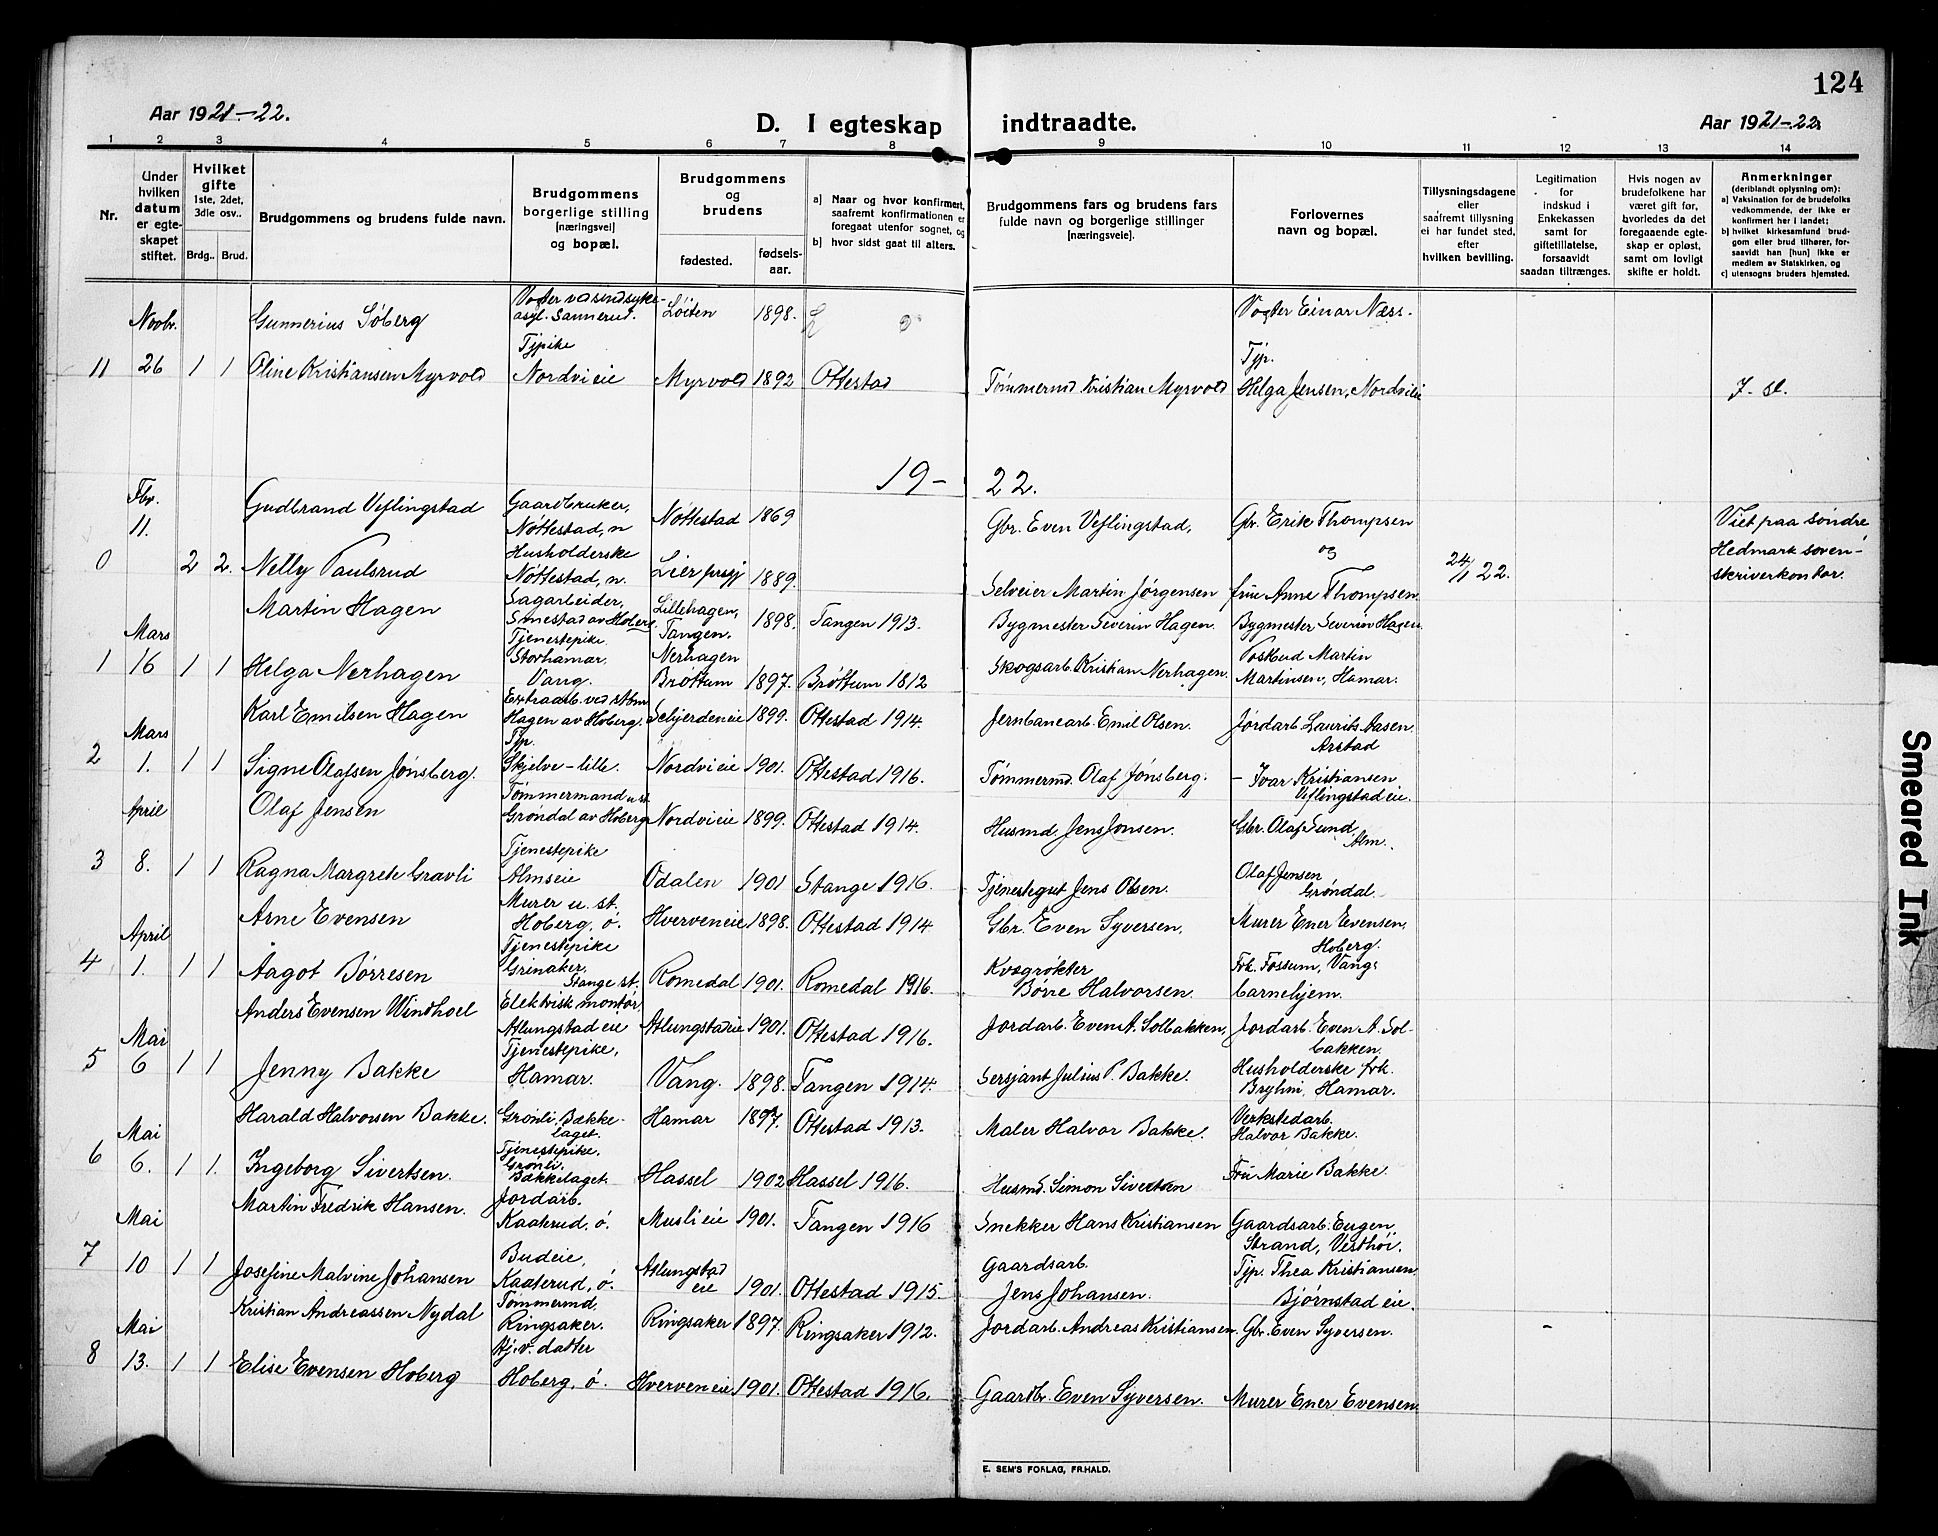 124
Aar 1921-22.
D. I egteskap indtraadte.
Aar 1921-22.
1 2 3 4 5 6 7 8 9 10 11 12 13 14
Nr.
Under hvilken datum er egteskapet stiftet.
Hvilket gifte 1ste, 2det, 3die osv..
Brdg.. Brud.
Brudgommens og brudens fulde navn.
Brudgommens borgerlige stilling (næringsvei) og bopæl.
Brudgommens og brudens
fødested. fødselsaar.
a) Naar og hvor konfirmert, saafremt konfirmationen er foregaat utenfor sognet, og
b) hvor sidst gaat til alters.
Brudgommens fars og brudens fars fulde navn og borgerlige stillinger (næringsveie).
Forlovernes navn og bopæl.
Tillysningsdagene eller saafremt tillysning ei har fundet sted, efter hvilken bevilling.
Legitimation for indskud i Enkekassen samt for giftetillatelse, forsaavidt saadan tiltrænges.
Hvis nogen av brudefolkene har været gift før, hvorledes da det foregaaende egteskap er opløst, samt om lovligt skifte er holdt.
Anmerkninger (deriblandt oplysning om):
a) Vaksination for de brudefolks vedkommende, der ikke er konfirmert her i landet;
b) hvilket kirkesamfund brudgom eller brud tilhører, forsaavidt han [hun] ikke er medlem av Statskirken, og
c) utensogns bruders hjemsted.
Novbr. Gunnerius Søberg Vogter ved sindsyke- asyl. Sannerud. Løiten 1898. Vogter Einar Næss.
11 26 1 1 Oline Kristiansen Myrvold Tjpike Nordvieie Myrvold 1892 Ottestad Tømmermd. Kristian Myrvold Tjp. Helga Jensen, Nordvieie J. sl.
19-22.
Fbr. 11. Gudbrand Veflingstad Gaardbruker, Nøttestad, n Nøttestad 1869 Gbr. Even Veflingstad, Gbr. Erik Thompsen og Viet paa søndre
0 2 2. Nelly Paulsrud Husholderske Nøttestad, n. Lier prgj 1889. Selveier Martin Jørgensen frue Anne Thompsen. 24/1 22. Hedmark soren- skriverkontor.
Mars Martin Hagen Sagarbeider, Smestad av Hoberg. Lillehagen, Tangen. 1898. Tangen 1913. Bygmester Severin Hagen. Bygmester Severin Hagen
1 16 1 1 Helga Nerhagen Tjenestepike Storhamar Vang. Nerhagen Brøttum 1897. Brøttum 1812 Skogsarb. Kristian Nerhagen. Postbud Martin Martinsen, Hamar.
Mars Karl Emilsen Hagen Extraarb. ved stbn Hagen av Hoberg. 1899. Ottestad 1914. Jernbanearb. Emil Olsen. Jordarb. Laurits Aasen Arstad
2 1. 1 1 Signe Olafsen Jønsberg. Tjp. Skjelve-lille. Nordvieie 1901. Ottestad 1916. Tømmermd. Olaf Jønsberg. - Ivar Kristiansen Veflingstad eie.
April Olaf Jensen Tømmermand u. st. Grøndal av Hoberg Nordvieie 1899. Ottestad 1914. Husmd. Jens Jonsen. Gbr. Olaf Sund, Alm.
3 8. 1 1 Ragna Margrete Gravli Tjenestepike Almseie Odalen 1901 Stange 1916. Tjenestegut Jens Olsen. Olaf Jensen Grøndal.
April Arne Evensen Murer u. st. Hoberg, ø. Hverveneie 1898. Ottestad 1914 Gbr. Even Syversen, Murer Ener Evensen, Hoberg.
4 1. 1 1 Aagot Børresen Tjenestepike Grinaker, Stange st. Romedal 1901. Romedal 1916. Kvægrøkter Børre Halvorsen. Frk. Fossum, Vangs barnehjem.
Mai Anders Evensen Windhoel Elektrisk montør Atlungstad eie Atlungstadeie 1901. Ottestad 1916. Jordarb. Even A. Solbakken, Jordarb. Even A. Sol- bakken.
5 6 1 1 Jenny Bakke Tjenestepike, Hamar. Vang. 1898. Tangen 1914. Sersjant Julius P. Bakke. Husholderske frk. Bryhni, Hamar.
Mai Harald Halvorsen Bakke. Grønli, Bække- laget. Hamar 1897. Ottestad 1913. Maler Halvor Bakke. Verkstedarb. Halvor Bakke.
6 6. 1 1. Ingeborg Sivertsen. Tjenestepike. Grønli. Bækkelaget. Hassel 1902 Hassel 1916. Husmd. Simon Sivertsen Fru Marie Bakke.
Mai Martin Fredrik Hansen. Jordarb. Kaaterud, ø. Muslieie 1901. Tangen 1916 Snekker Hans Kristiansen Gaardsarb. Eugen Strand, Vesthøi.
7 10 1 1 Josefine Malvine Johansen Budeie, Kaaterud, ø. Atlungstad eie 1901. Ottestad 1915. Gaardsarb. Jens Johansen. Tjp. Thea Kristiansen Bjørnstad eie.
Mai Kristian Andreassen Nydal Tømmermd. Ringsaker. Ringsaker 1897. Ringsaker 1912. Jordarb. Andreas Kristiansen Gbr. Even Syversen.
8 13. 1 1 Elise Evensen Hoberg Hj.v. datter Hoberg, ø. Hverveneie 1901. Ottestad 1916. Gaardbr. Even Syversen. Murer Ener Evensen.
E. SEM'S FORLAG, FR.HALD.
Smeared Ink